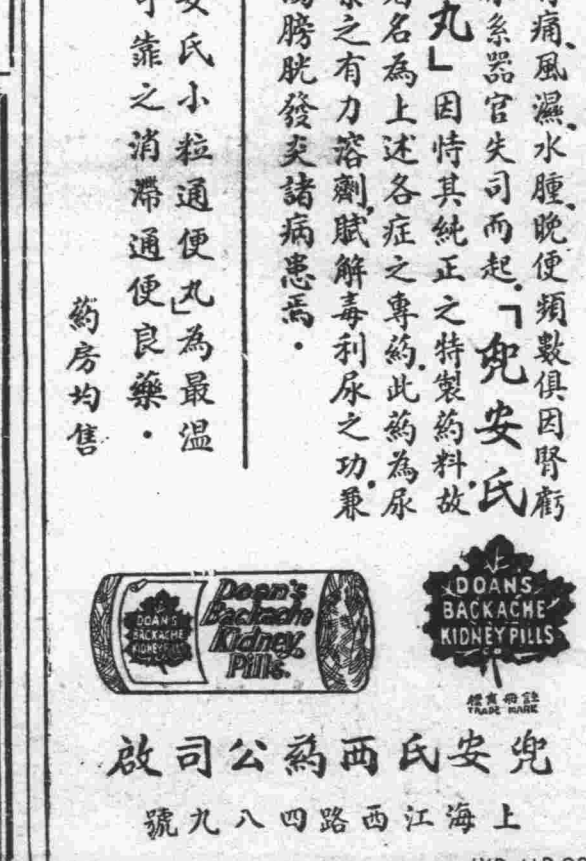 痛、風濕、水腫、晚便頻數俱因腎虧
系器官失司而起。「兜安氏
丸」因恃其純正之特製葯料。故
名為上述各症之專葯。此葯為尿
之有力溶劑。賦解毒利尿之功。兼
膀胱發炎諸病患焉．
安氏小粒通便丸」為最温
靠之消滯通便良藥．
葯房均售
DOANS
BACKACHE
KIDNEY PILLS
註冊商標
TRADE MARK
Doan's
Backache
Kidney
Pills.
DOANS
BACKACHE
KIDNEY PILLS
兜安氏西葯公司啟
上海江西路四八九號